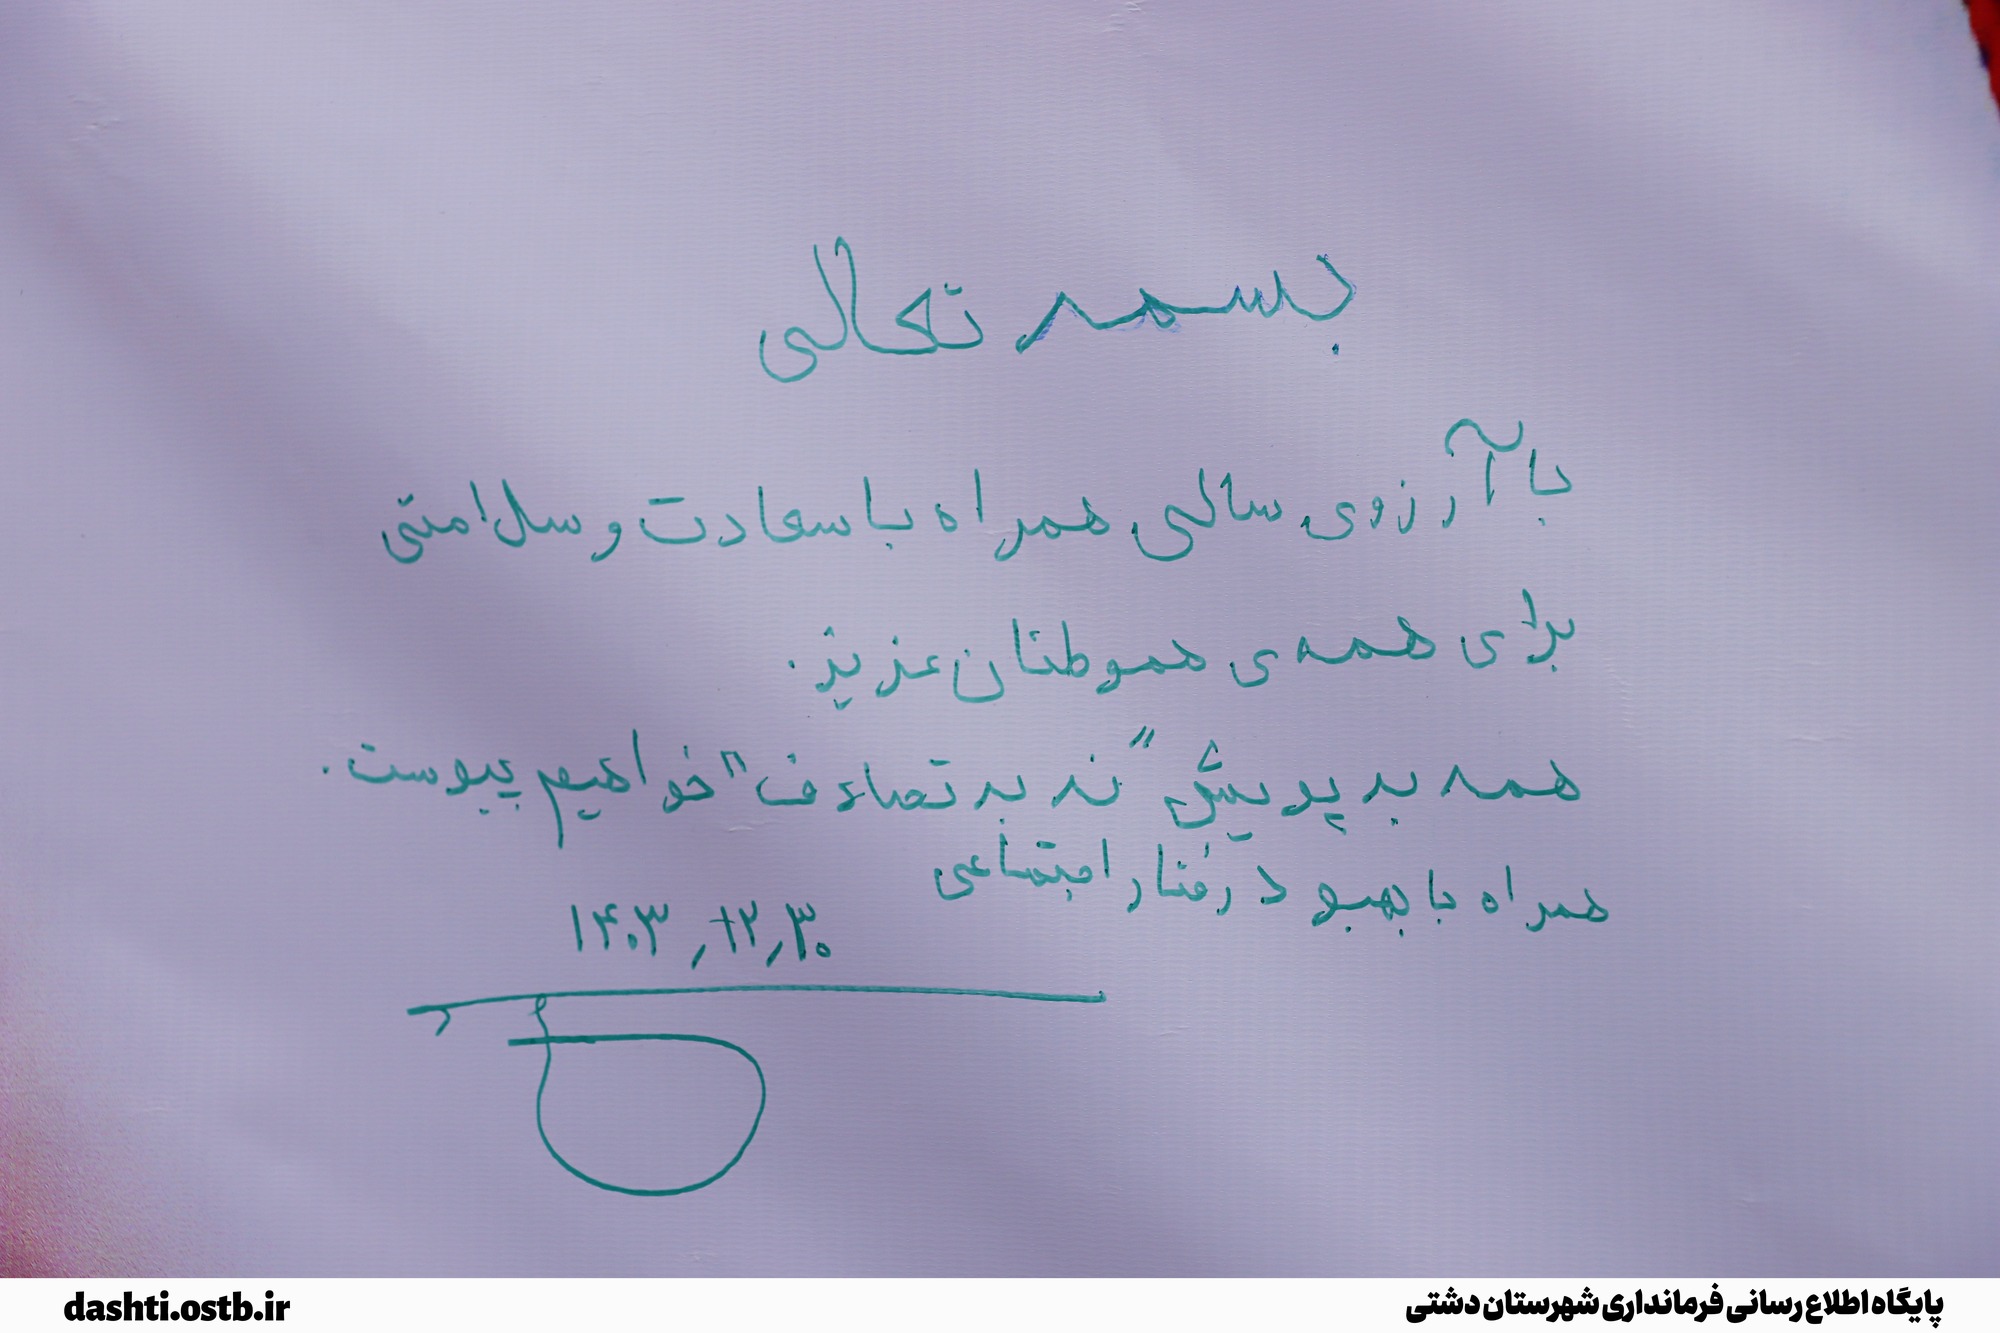 بسمه تعالی
با آرزوی سالی همراه با سعادت و سلامتی
برای همه ی هموطنان عزیز.
همه به پویش "نه به تصادف" خواهیم پیوست.
همراه با بهبود رفتار اجتماعی
۱۴۰۳/۱۲/۳۰
dashti.ostb.ir
پایگاه اطلاع رسانی فرمانداری شهرستان دشتی